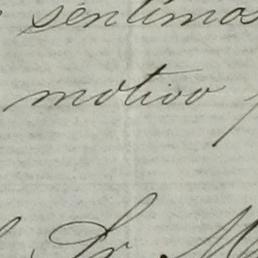 sentimos
motivo
Sr. M